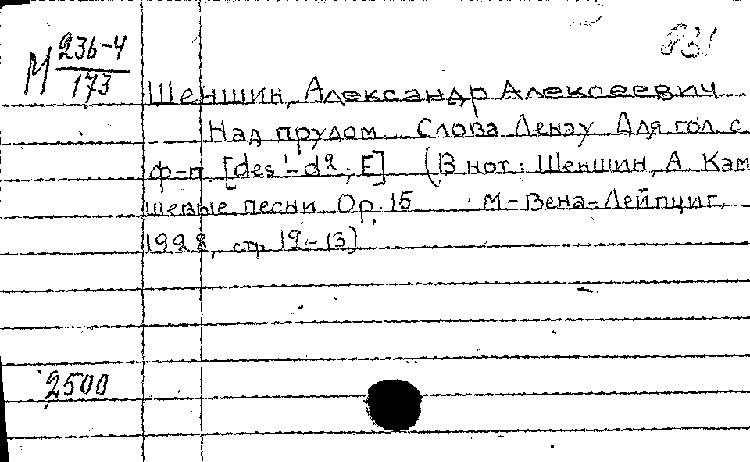 М 236-4
173
831
Шеншин, Александр Алексеевич
Над прудом. Слова Ленау Для гол. с
ф-п [des¹-d²; E] (В нот: Шеншин, А. Кам
шевые песни Op. 15 М-Вена-Лейпциг,
1928, стр 12-13)
2500